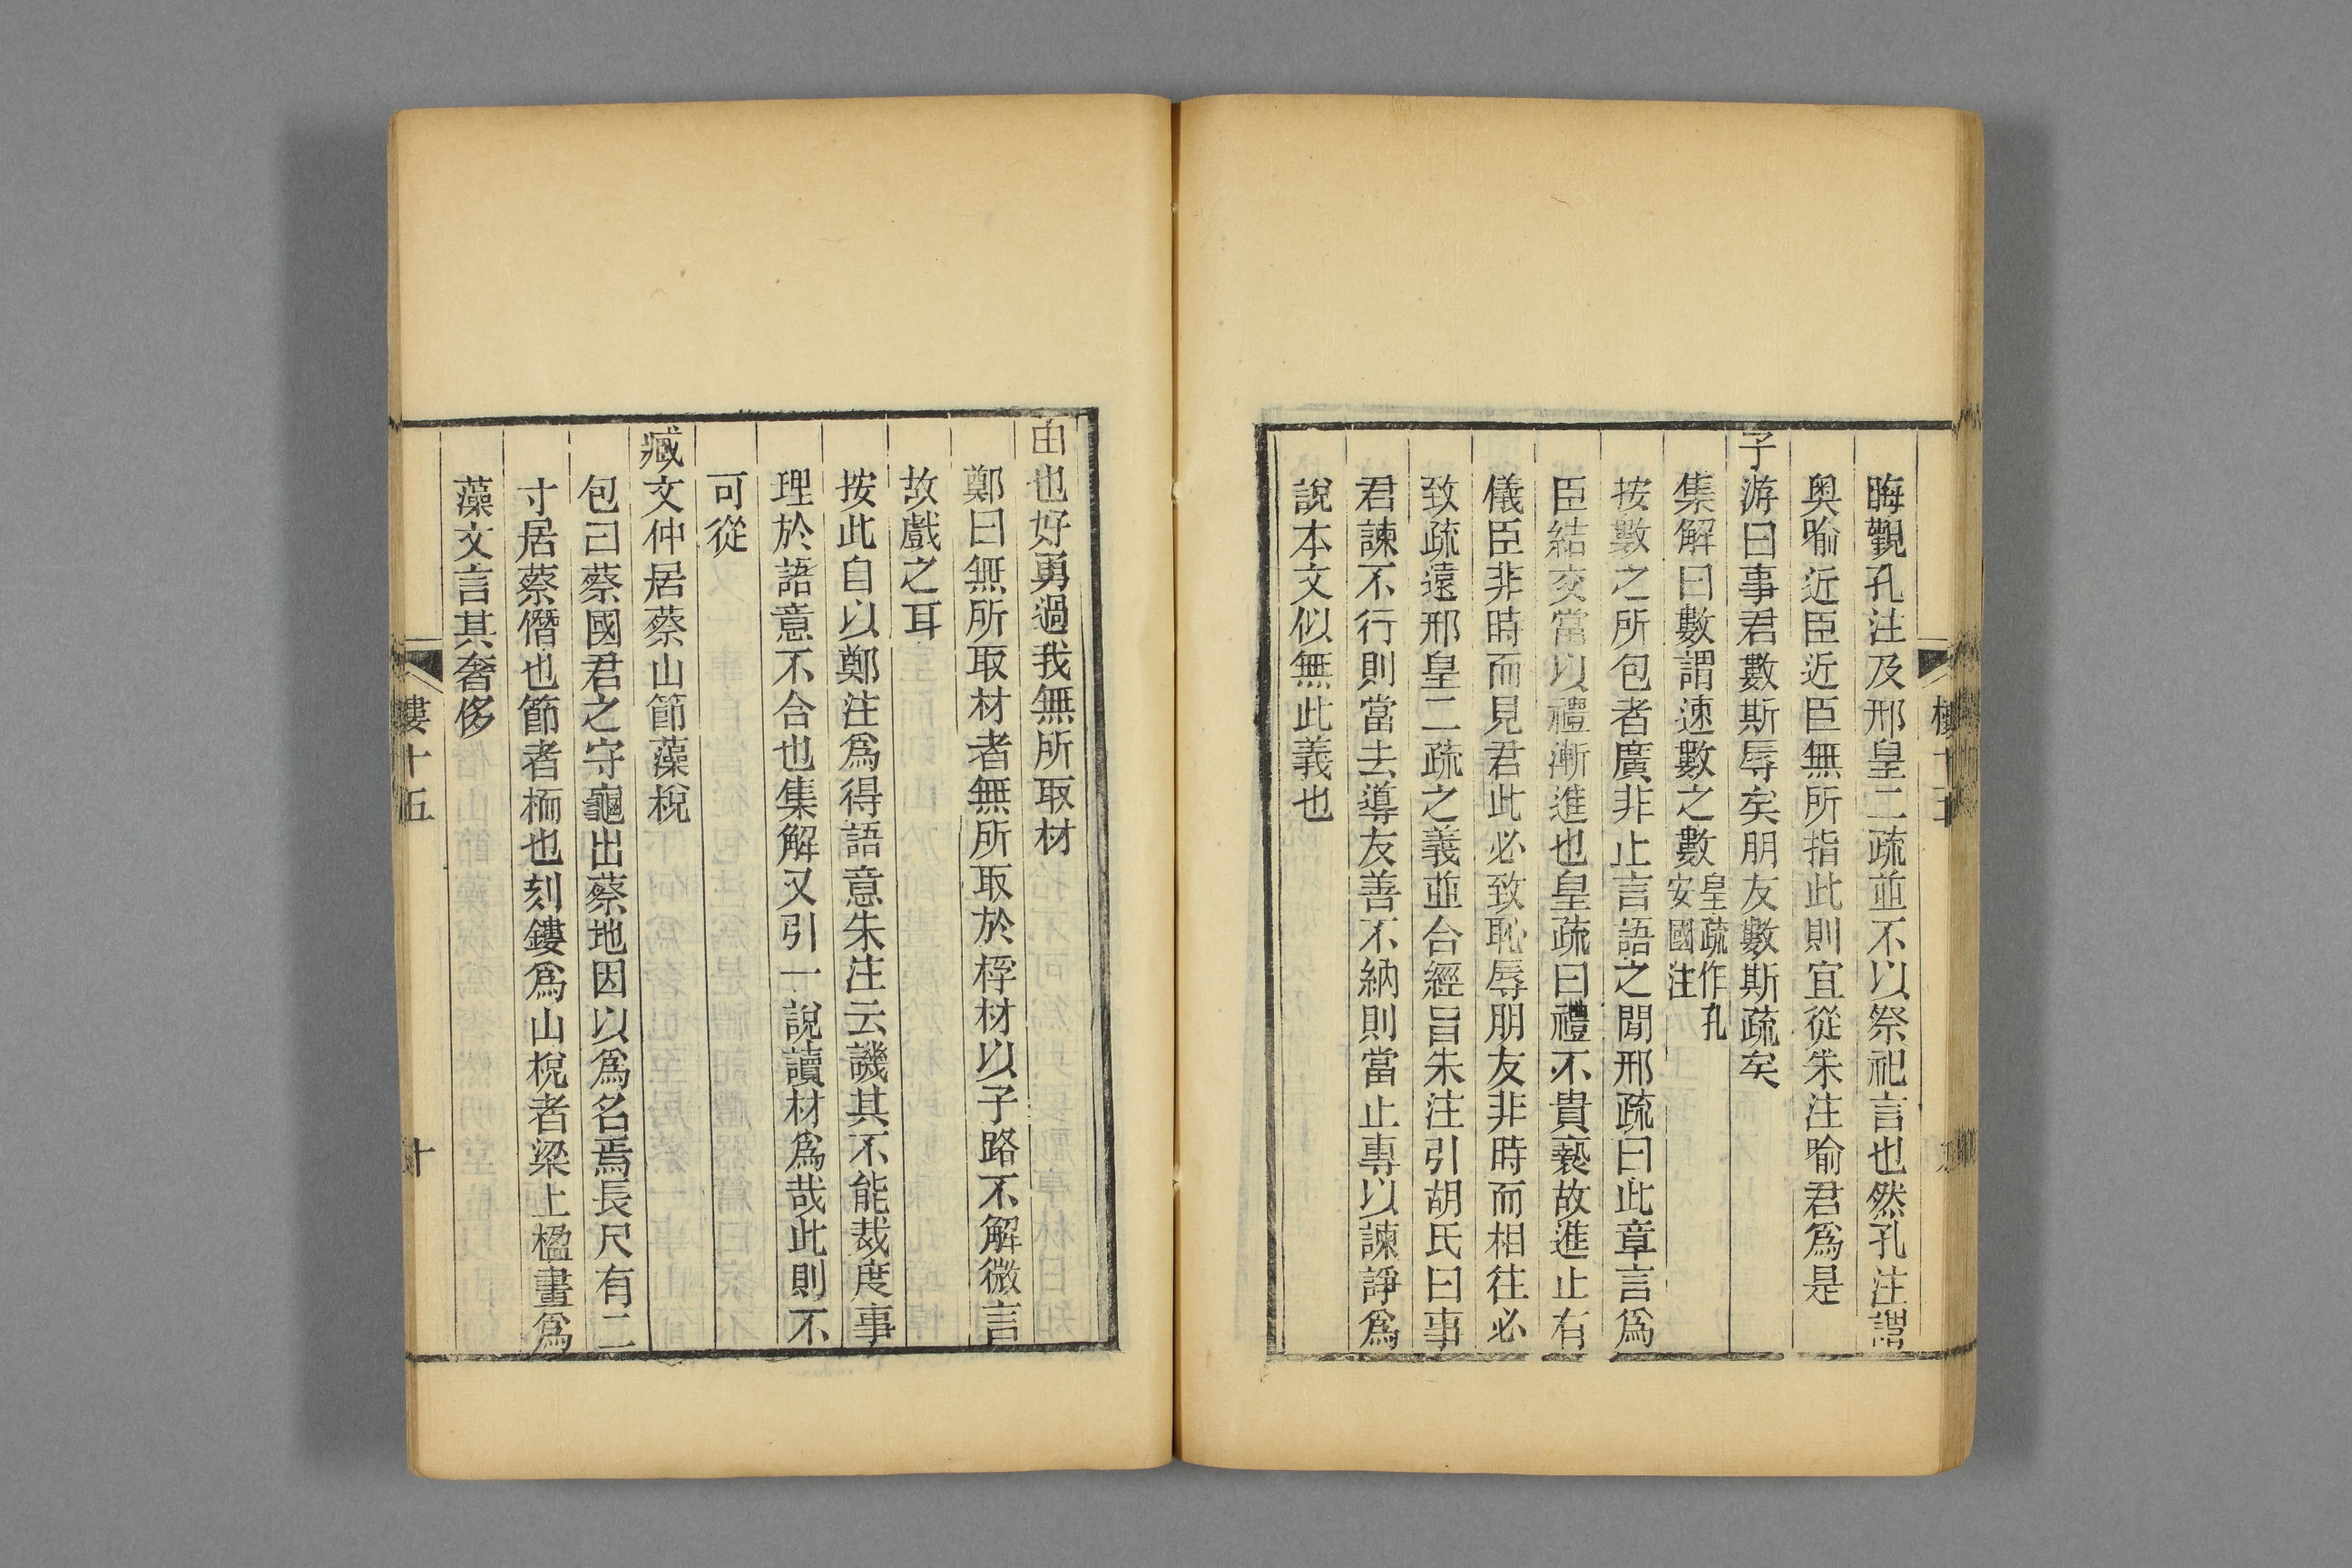 晦觀孔注及邢皇二疏並不以祭祀言也然孔注謂
奥喻近臣近臣無所指此則宜從朱注喻君爲是
子游曰事君數斯辱矣朋友數斯疏矣
集解曰數謂速數之數皇疏作孔安國注
按數之所包者廣非止言語之間邢疏曰此章言爲
臣結交當以禮漸進也皇疏曰禮不貴褻故進止有
儀臣非時而見君此必致恥辱朋友非時而相往必
致疏遠邢皇二疏之義並合經旨朱注引胡氏曰事
君諫不行則當去導友善不納則當止專以諫諍爲
說本文似無此義也
由也好勇過我無所取材
鄭曰無所取材者無所取於桴材以子路不解微言
故戲之耳
按此自以鄭注爲得語意朱注云譏其不能裁度事
理於語意不合也集解又引一說讀材爲哉此則不
可從
臧文仲居蔡山節藻梲
包曰蔡國君之守龜出蔡地因以爲名焉長尺有二
寸居蔡僭也節者栭也刻鏤爲山梲者梁上楹畫爲
藻文言其奢侈
十五
十